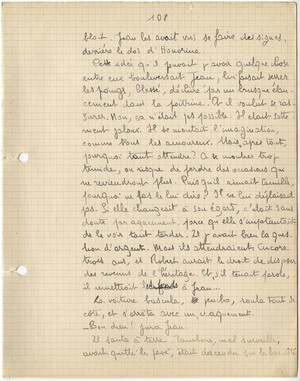 108
blait. Jean les avait vus se faire des signes,
derrière le dos d'Honorine.
Cette idée qu'il pouvait y avoir quelque chose
entre eux bouleversait Jean, lui faisait serrer
les poings. Blessé, déchiré par un brusque élan-
cement dans la poitrine. Et il voulut se ras-
surer. Non, ça n'était pas possible. Il était sotte-
ment jaloux. Il se montait l'imagination,
comme tous les amoureux. Mais, après tout,
pourquoi tant attendre? A se montrer trop
timide, on risque de perdre des occasions qui
ne reviendront plus. Puisqu'il aimait
pourquoi ne pas le lui dire? Il ne lui déplaisait
pas. Si elle changeait à son égard, c'était sans
doute par agacement, parce qu'elle s'impatientait
de le voir tant tarder. Il y avait bien la ques-
tion d'argent. Mais ils attendraient encore
trois ans, et Robert aurait le droit de disposer
des revenus de l'héritage. Et, s'il tenait parole,
il remettrait les fonds à Jean...
La voiture bascula, pencha, roula tout de
côté, et s'arrêta avec un craquement.
- Bon dieu! jura Jean.
Il sauta à terre. mal surveillé,
avait quitté le pavé, était descendu sur le bas-côté